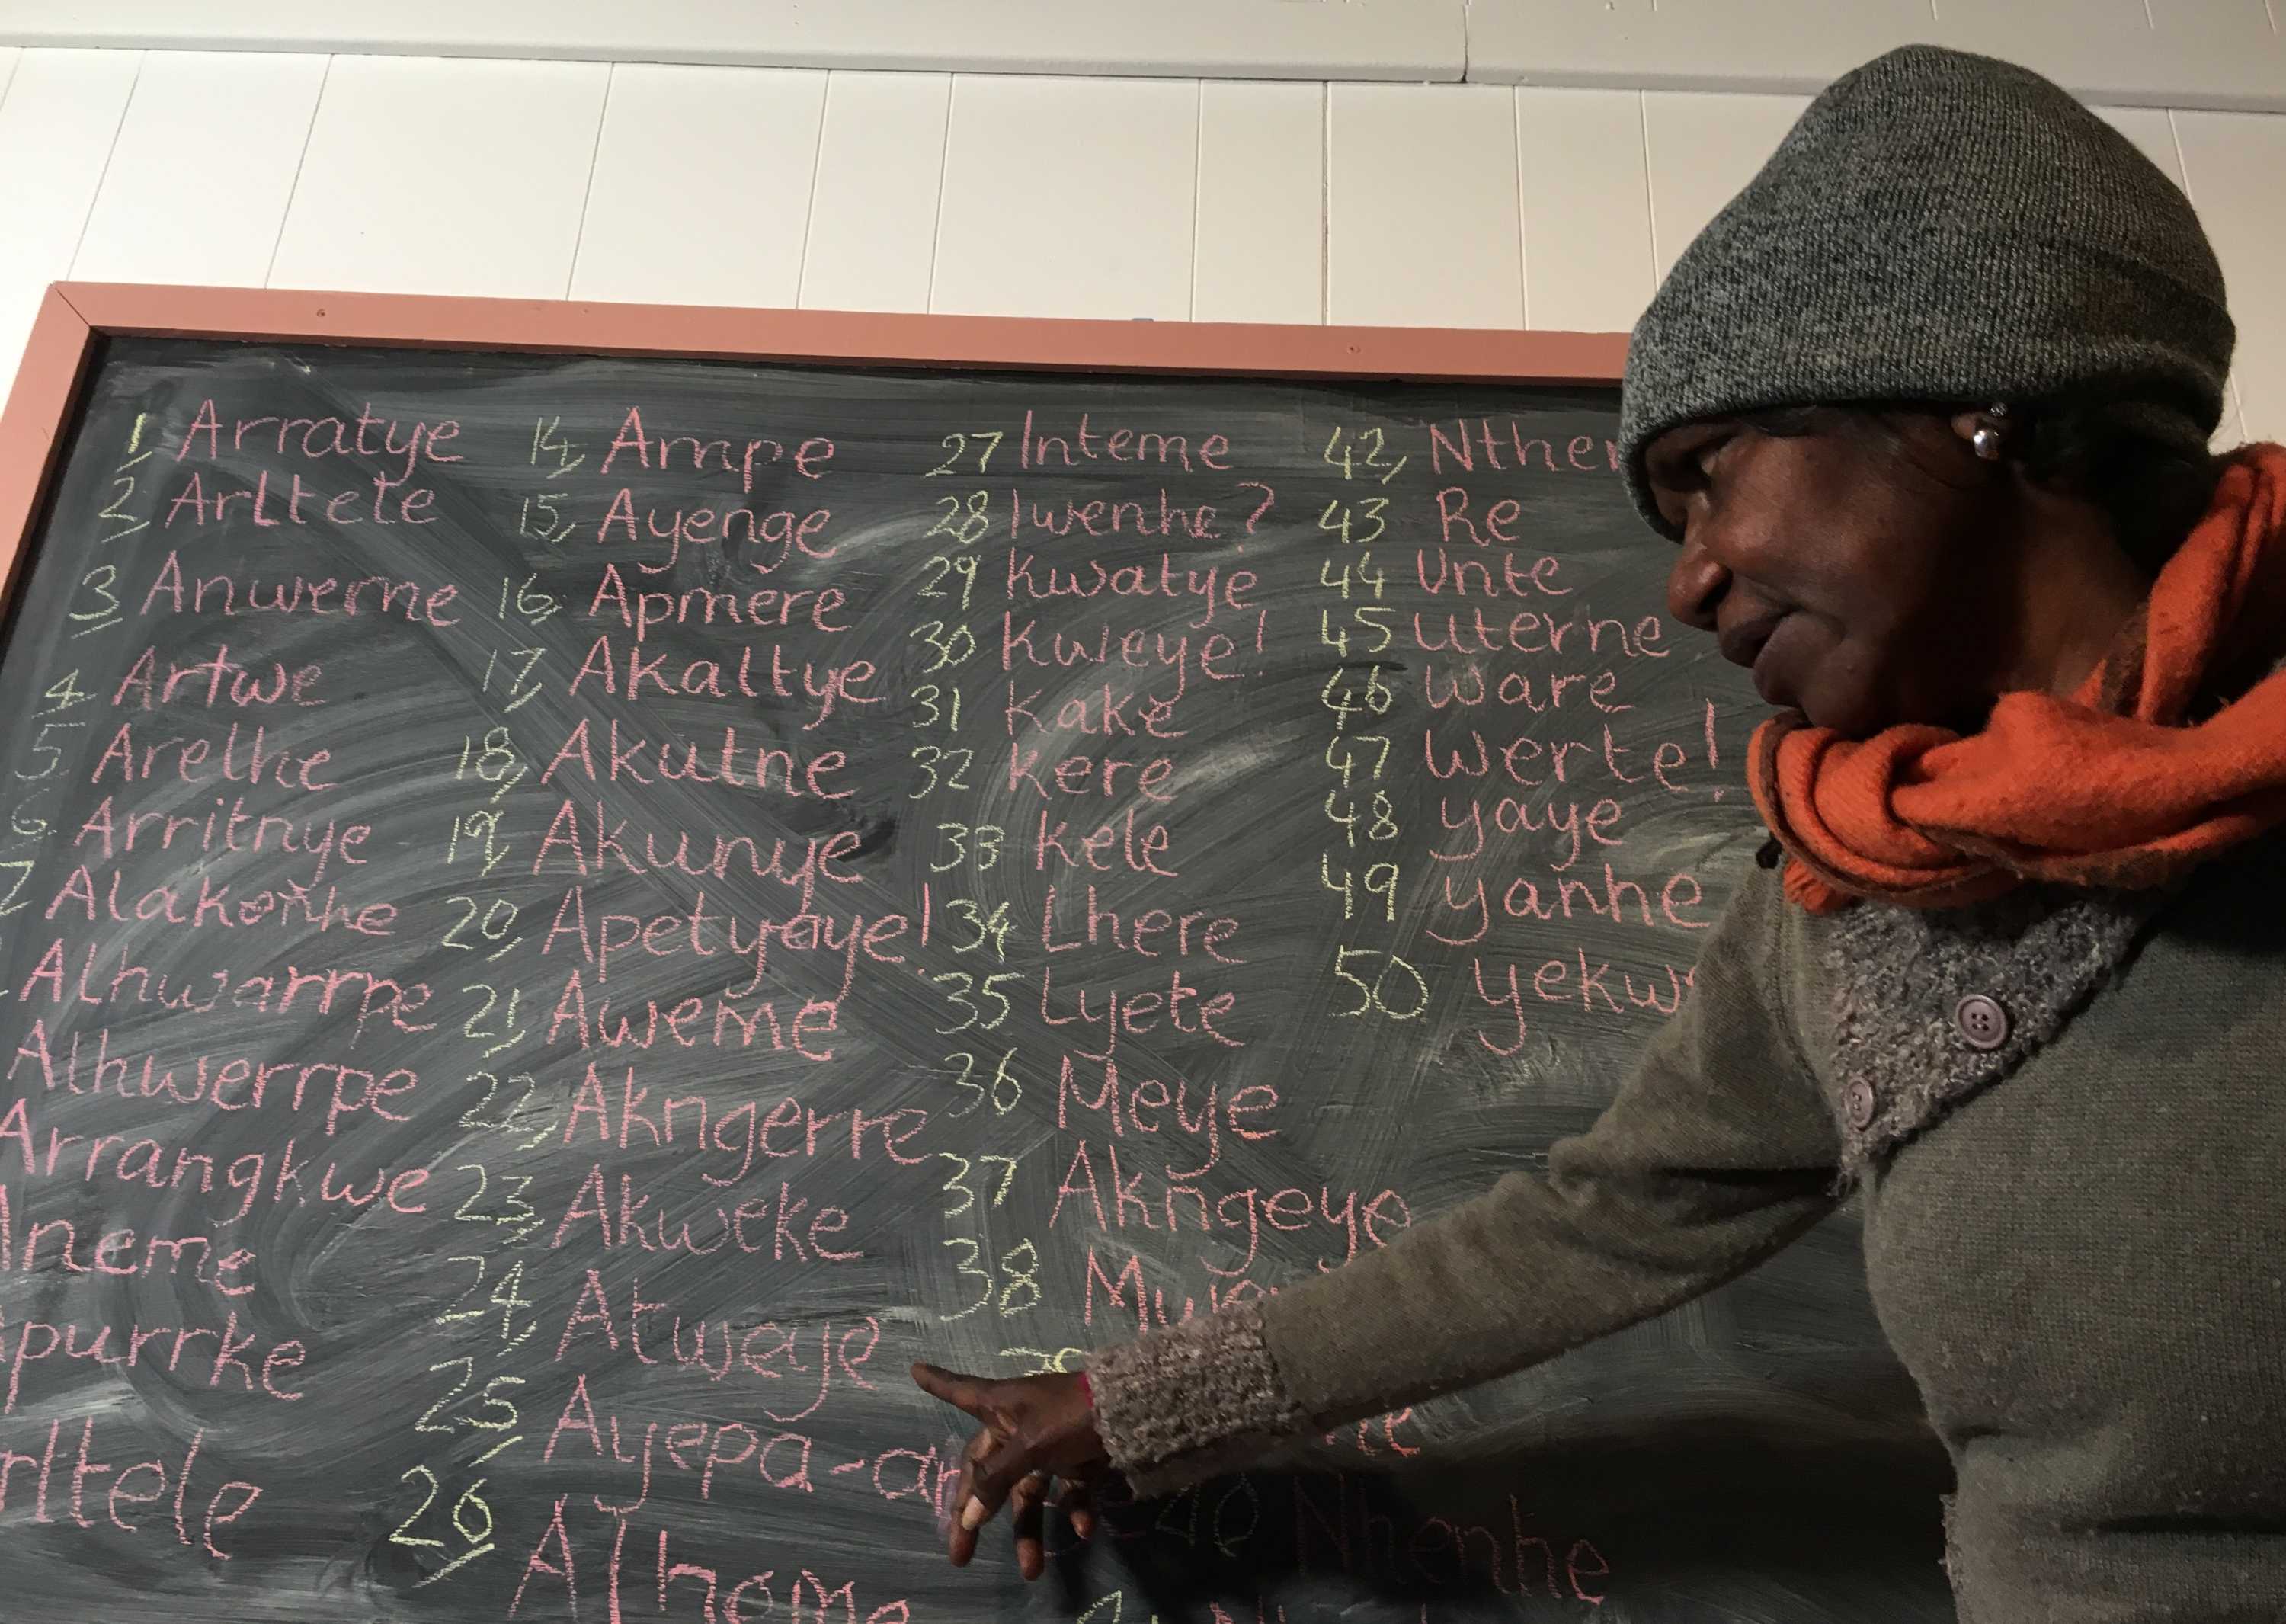 1 Arratye
2, Arltele
3 Anwerne
4 Artwe
5 Arelhe
6 Arritnye
7 Alakenhe
Alhwarrpe
Alhwerrpe
Arrangkwe
Aneme
Apurrke
rltele
14, Ampe
15, Ayenge
16, Apmere
17, Akaltye
18, Akutne
19, Akunye
20, Apetyaye!
21, Aweme
22, Akngerre
23, Akweke
24, Atweye
25 Ayepa-a
26
27 Inteme
28 Iwenhe?
29 Kwatye
30 Kweye!
31 Kake
32 Kere
33 Kele
34 Lhere
35 Lyete
36 Meye
37 Akngeye
38
40 Nhenhe
42, Nthe
43 Re
44 Unte
45 Uterne
46 Ware
47 Werte!
48 yaye
49 yanhe
50 yekw